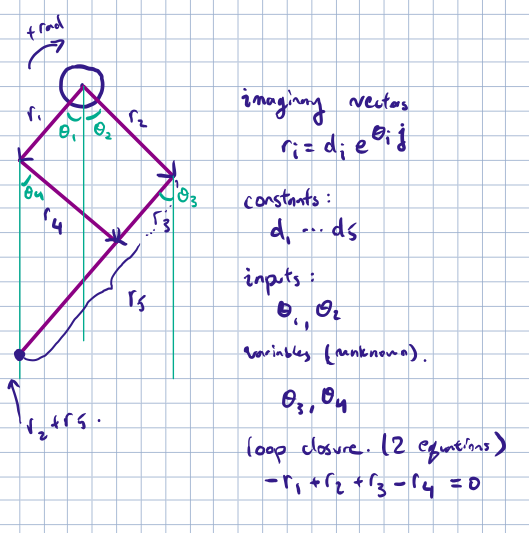 +rad
r₁
r₂
θ₁
θ₂
θ₄
θ₃
r₄
r₃
r₅
r₂+r₅.
imaginary vectors
rᵢ = dᵢ e^θᵢj
constants:
d₁ ... d5
inputs:
θ₁, θ₂
variables (unknown).
θ₃, θ₄
loop closure. (2 equations)
-r₁ + r₂ + r₃ - r₄ = 0